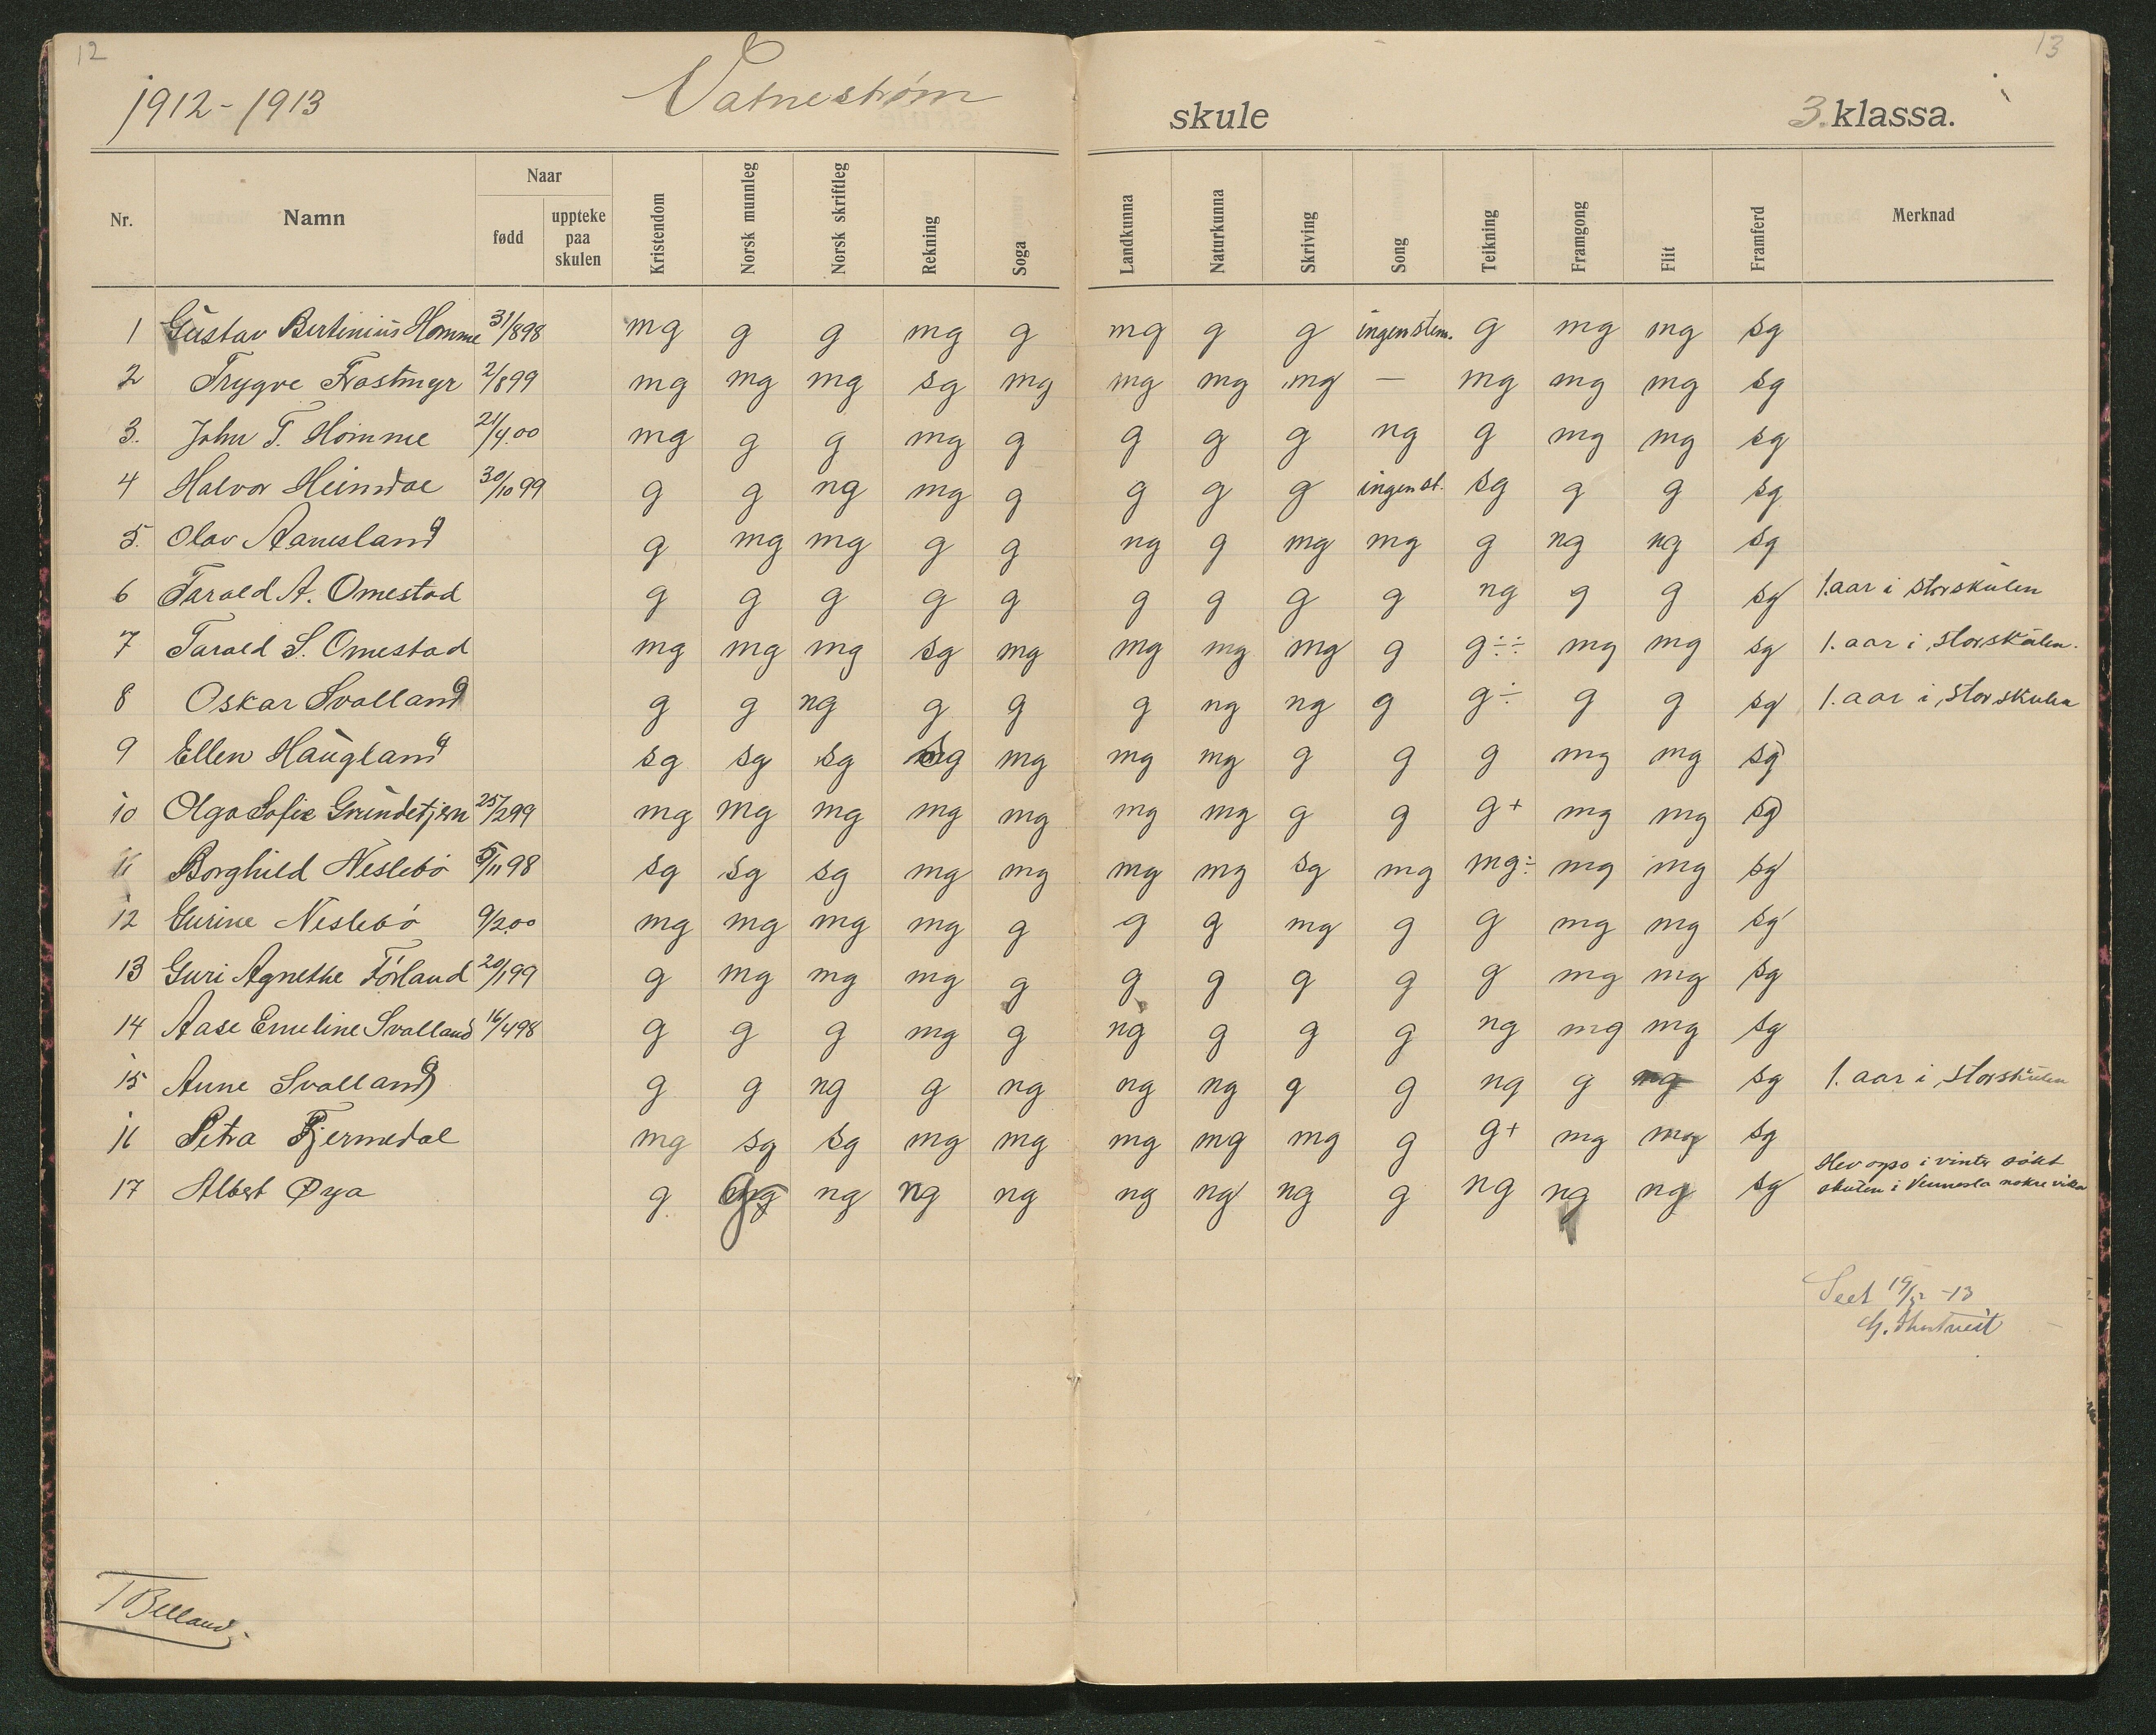 12
13
1912-1913 Vatnestrøm skule 3. klassa.
Nr. Namn Naar født uppteke paa skulen Kristendom Norsk munnleg Norsk skriftleg Rekning Soga Landkunna Naturkunna Skriving Song Teikning Framgong Flit Framferd Merknad
1 Gustav Bertinius Homme 31/898 mg g g mg g mg g g ingen stem. g mg mg sg
2 Trygve Frøstmyr 2/899 mg mg mg sg mg mg mg mg — mg mg mg sg
3. John T. Homme 21/4.00 mg g g mg g g g g ng g mg mg sg
4 Halvor Heimdal 30/10 99 g g ng mg g g g g ingen st. sg g g sg
5. Olav Aanesland g mg mg g g ng g mg mg g ng ng sg
6 Tarald A. Omestad g g g g g g g g g ng g g sg 1. aar i storskulen
7 Tarald S. Omestad mg mg mg sg mg mg mg mg g g÷÷ mg mg sg 1. aar i storskulen.
8 Oskar Svalland g g ng g g g ng ng g g÷ g g sg 1. aar i storskulen
9 Ellen Haugland sg sg sg sg mg mg mg g g g mg mg sg
10 Olga Sofie Grundetjern 25/299 mg mg mg mg mg mg mg g g g+ mg mg sg
11 Borghild Neslebö 5/11 98 sg sg sg mg mg mg mg sg mg mg÷ mg mg sg
12 Gurine Neslebö 9/2.00 mg mg mg mg g g g mg g g mg mg sg
13 Guri Agnethe Förland 20/199 g mg mg mg g g g g g g mg mg sg
14 Aase Emeline Svalland 16/498 g g g mg g ng g g g ng mg mg sg
15 Anne Svalland g g ng g ng ng ng g g ng g mg sg 1. aar i storskulen
16 Petra Fjermedal mg sg sg mg mg mg mg mg g g+ mg mg sg
17 Albert Øya g g ng ng ng ng ng ng g ng ng ng sg Hev ogso i vinter søkt
skulen i Vennesla nokre vikor
Seet 19/12 -13
T Belland.